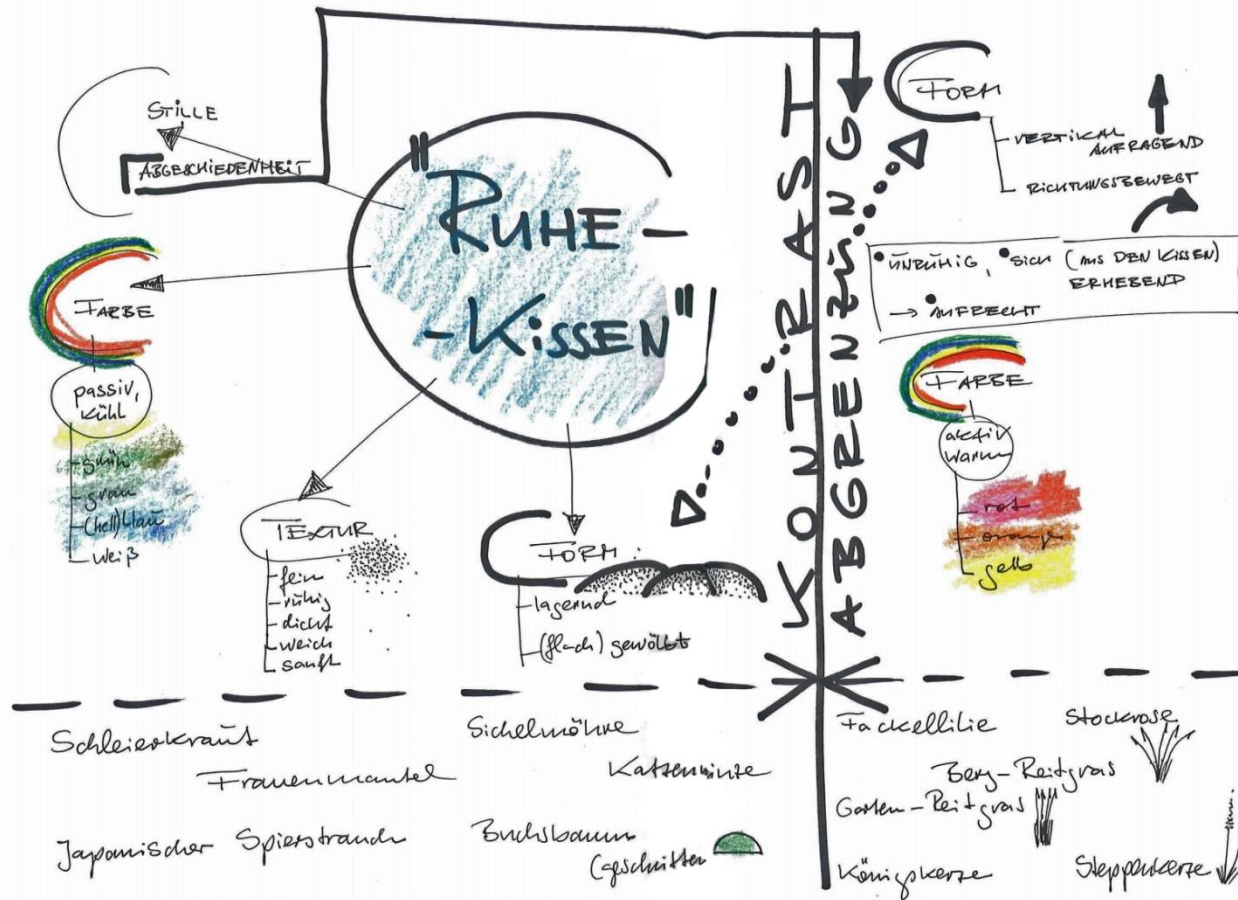 STILLE
ABGESCHIEDENHEIT
"RUHE-
-KISSEN"
FARBE
passiv,
kühl
grün
grau
(hell)blau
weiß
TEXTUR
fein
ruhig
dicht
weich
sanft
FORM
lagernd
(flach) gewölbt
KONTRAST
ABGRENZUNG
FORM
VERTIKAL
AUFRAGEND
RICHTUNGSBEWEGT
• UNRUHIG, • SICH (AUS DEN KISSEN)
ERHEBEND
→ • AUFRECHT
FARBE
aktiv
warm
rot
orange
gelb
Schleierkraut
Frauenmantel
Japanischer Spierstrauch
Sichelmöhre
Katzenminze
Buchsbaum
(geschnitten
Fackellilie
Stockrose
Berg-Reitgras
Garten-Reitgras
Königskerze
Steppenkerze